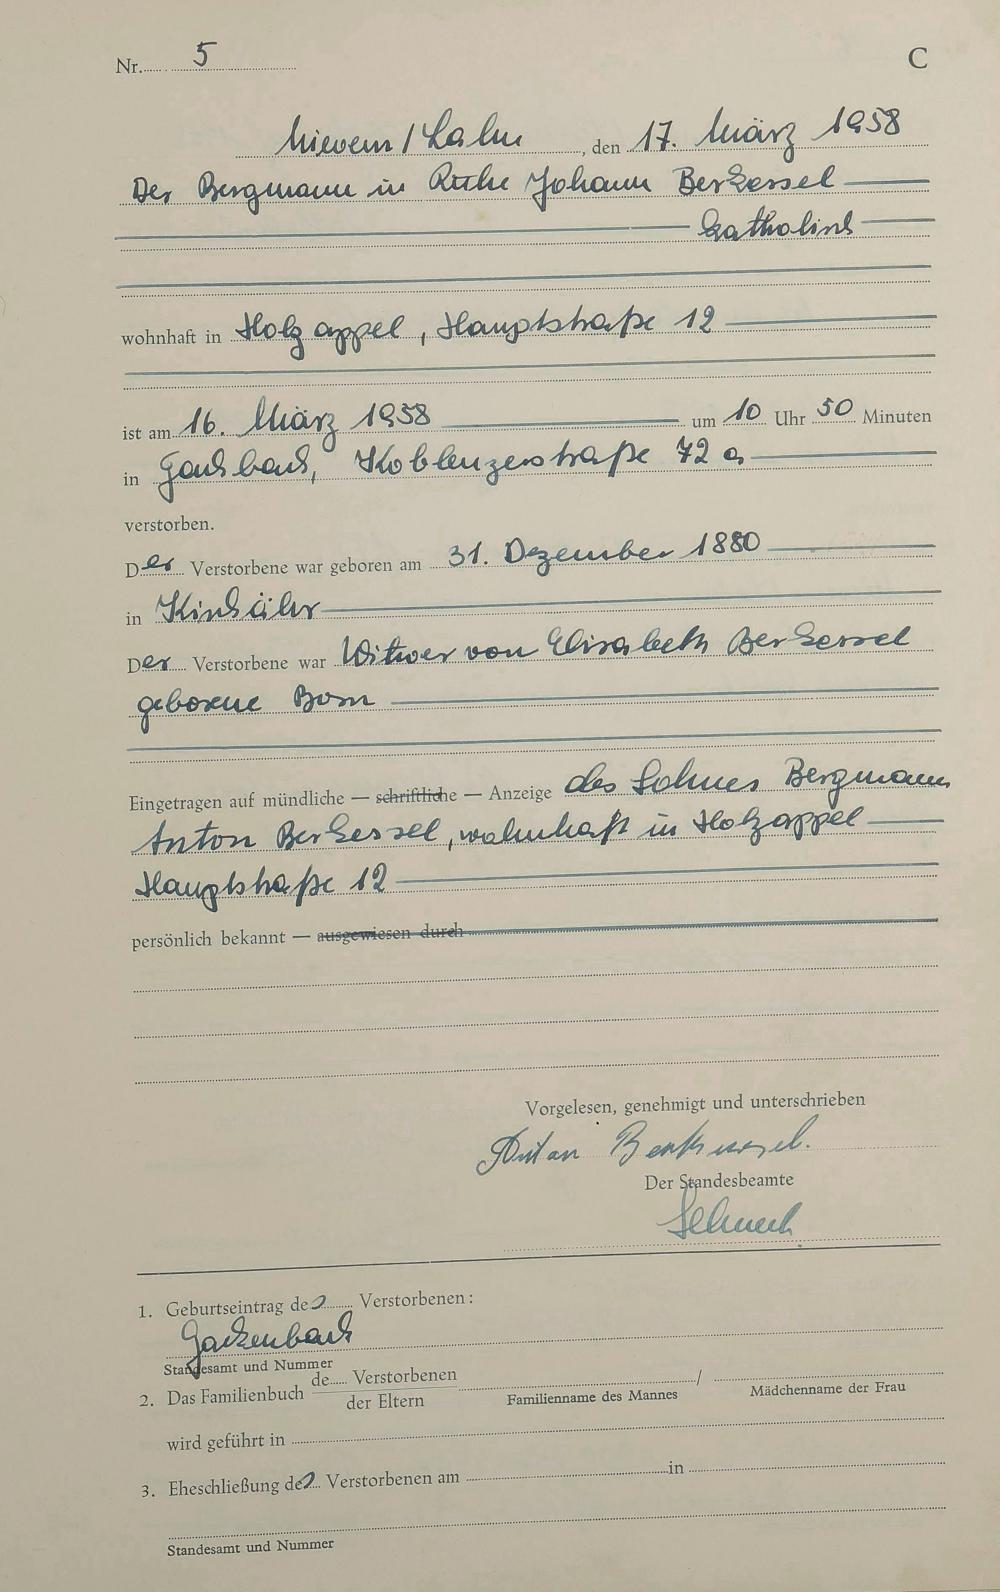 Nr. 5
C
Nievern / Lahn, den 17. März 1958
Der Bergmann in Ruhe Johann Berkessel
katholisch
wohnhaft in Holzappel, Hauptstraße 12
ist am 16. März 1958 um 10 Uhr 50 Minuten
in Koblenzerstraße 72 a
verstorben.
Der Verstorbene war geboren am 31. Dezember 1880
in Kirchähr
Der Verstorbene war Witwer von Elisabeth Berkessel
geborene Born
Eingetragen auf mündliche — schriftliche — Anzeige des Sohnes Bergmann
Anton Berkessel, wohnhaft in Holzappel
Hauptstraße 12
persönlich bekannt — ausgewiesen durch
Vorgelesen, genehmigt und unterschrieben
Anton Berkessel.
Der Standesbeamte
1. Geburtseintrag des Verstorbenen:
Gackenbach
Standesamt und Nummer
2. Das Familienbuch de Verstorbenen / der Eltern
Familienname des Mannes / Mädchenname der Frau
wird geführt in
3. Eheschließung des Verstorbenen am in
Standesamt und Nummer